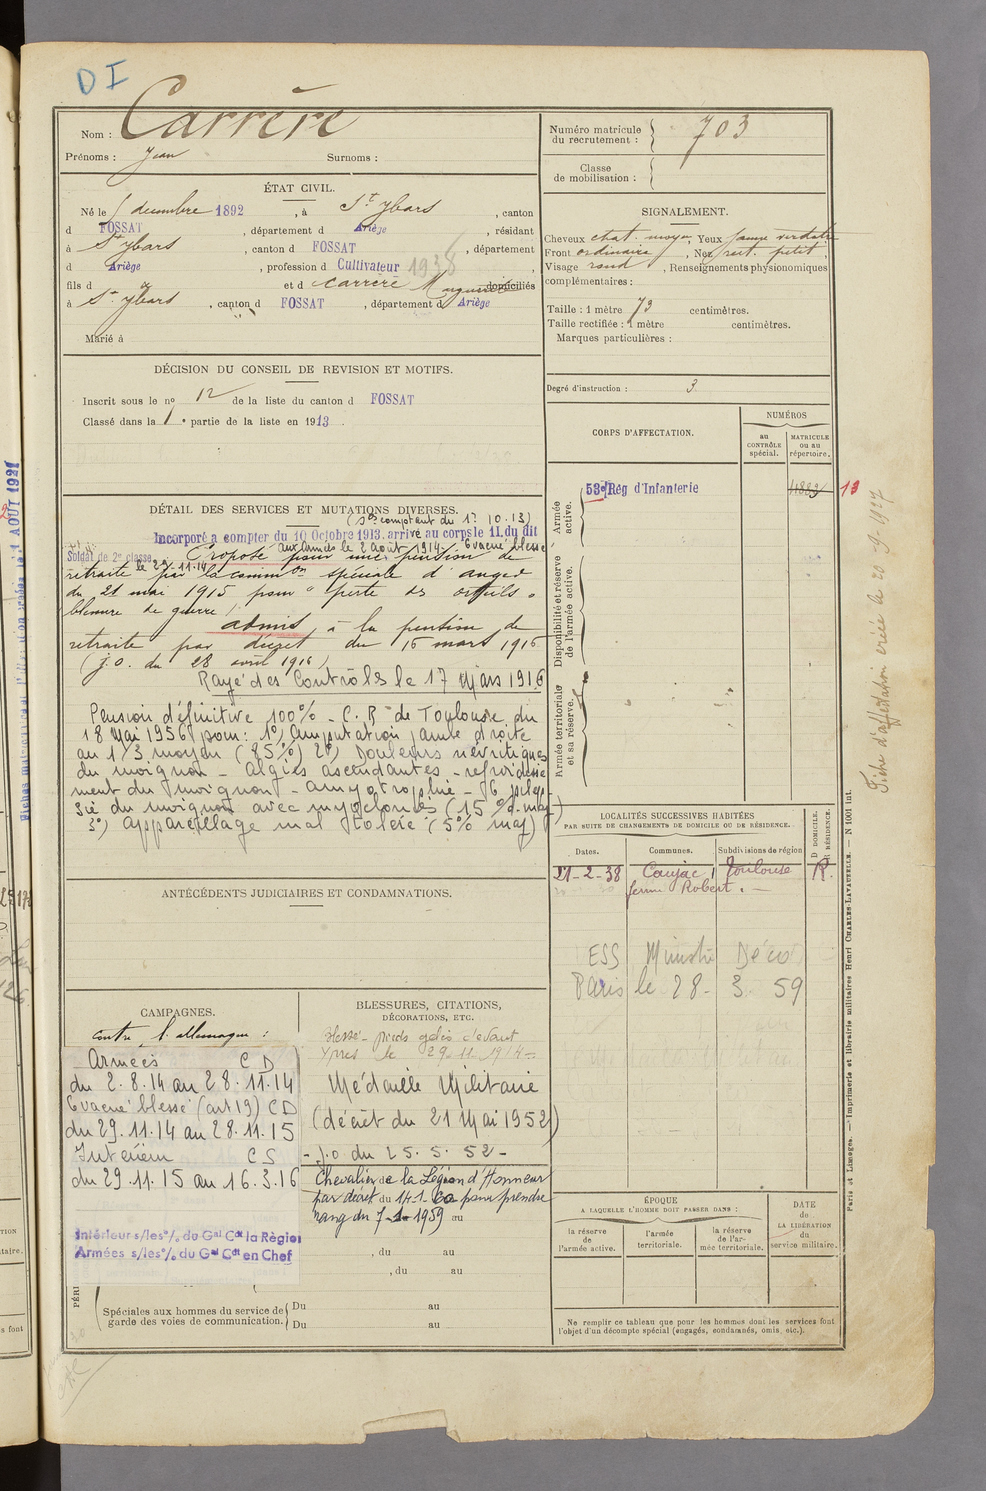 D I
Nom : Carrère
Prénoms : Jean Surnoms :
ÉTAT CIVIL.
Né le décembre 1892, à St Ybars, canton
d FOSSAT, département d Ariège, résidant
à St Ybars, canton d FOSSAT, département
d Ariège, profession d Cultivateur 1938
fils d et d Carrère Marguerite domiciliés
à St Ybars, canton d FOSSAT, département d Ariège
Marié à
DÉCISION DU CONSEIL DE REVISION ET MOTIFS.
Inscrit sous le no 12 de la liste du canton d FOSSAT
Classé dans la 1e partie de la liste en 1913.
DÉTAIL DES SERVICES ET MUTATIONS DIVERSES.
(Sces comptant du 1er 10.13)
Incorporé a compter du 10 Octobre 1913. arrivé au corps le 11. du dit
Soldat de 2e classe. aux Armées le 2 août 1914. Evacué blessé
le 29.11.14 Proposé pour une pension de
retraite par la common spéciale d'
du 21 mai 1915 pour "perte des orteils"
blessure de guerre.
admis à la pension de
retraite par décret du 16 mars 1916
(j.o. du 28 avril 1916)
Rayé des Contrôles le 17 Mars 1916
Pension définitive 100% - C.R. de Toulouse du
18 Mai 1956 pour : 1°) Amputation jambe droite
au 1/3 moyen (85%) 2°) Douleurs névritiques
du moignon - Algies ascendantes - refroidisse
ment du moignon - amyotrophie -
du moignon avec myoclonies (15% d. maj)
3°) Appareillage mal toléré (5% maj)
ANTÉCÉDENTS JUDICIAIRES ET CONDAMNATIONS.
CAMPAGNES.
contre l'allemagne :
Armées C D
du 2.8.14 au 28.11.14
Evacué blessé (art 19) C D
du 29.11.14 au 28.11.15
Intérieur C S
du 29.11.15 au 16.3.16
Intérieur s/les o/. du Gal Cdt la Région
Armées s/les o/. du Gal Cdt en Chef
BLESSURES, CITATIONS,
DÉCORATIONS, ETC.
Blessé - pieds gelés devant
Ypres le 29.11.1914 -
Médaille Militaire
(décret du 21 Mai 1952)
- J.O du 25.5.52 -
Chevalier de la Légion d'Honneur
par décret du 14-1-60 pour prendre
rang du 7-1-1959 au
, du au
, du au
PÉRI
Spéciales aux hommes du service de garde des voies de communication. { Du au
Du au
Numéro matricule du recrutement : 703
Classe de mobilisation :
SIGNALEMENT.
Cheveux chat. moyen, Yeux jaune verdâtre
Front ordinaire, Nez rect. petit,
Visage rond, Renseignements physionomiques
complémentaires :
Taille : 1 mètre 73 centimètres.
Taille rectifiée : 1 mètre centimètres.
Marques particulières :
Degré d'instruction : 3
CORPS D'AFFECTATION.
NUMÉROS
au CONTRÔLE spécial.
MATRICULE ou au répertoire.
Armée active.
53e Rég d'Infanterie 13
Disponibilité et réserve de l'armée active.
Armée territoriale et sa réserve.
Fiche d'affectation créée le 20-9-1927
LOCALITÉS SUCCESSIVES HABITÉES
PAR SUITE DE CHANGEMENTS DE DOMICILE OU DE RÉSIDENCE.
Dates. Communes. Subdivisions de région D. DOMICILE. R. RÉSIDENCE.
21-2-38 Caujac, Toulouse R.
ferme Robert. -
ESS Ministre Déco
Paris le 28-3 59
ÉPOQUE
A LAQUELLE L'HOMME DOIT PASSER DANS :
la réserve de l'armée active.
l'armée territoriale.
la réserve de l'armée territoriale.
DATE de LA LIBÉRATION du service militaire.
Ne remplir ce tableau que pour les hommes dont les services font
l'objet d'un décompte spécial (engagés, condamnés, omis, etc.).
Paris et Limoges. — Imprimerie et librairie militaires Henri CHARLES-LAVAUZELLE. — N 1001 int.